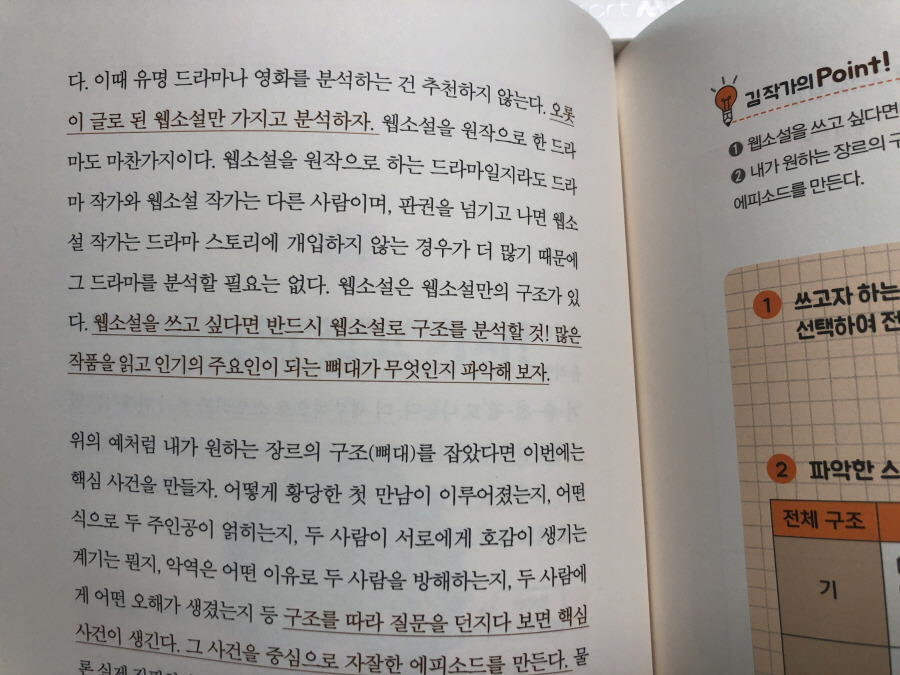 다. 이때 유명 드라마나 영화를 분석하는 건 추천하지 않는다. 오롯
이 글로 된 웹소설만 가지고 분석하자. 웹소설을 원작으로 한 드라
마도 마찬가지이다. 웹소설을 원작으로 하는 드라마일지라도 드라
마 작가와 웹소설 작가는 다른 사람이며, 판권을 넘기고 나면 웹소
설 작가는 드라마 스토리에 개입하지 않는 경우가 더 많기 때문에
그 드라마를 분석할 필요는 없다. 웹소설은 웹소설만의 구조가 있
다. 웹소설을 쓰고 싶다면 반드시 웹소설로 구조를 분석할 것! 많은
작품을 읽고 인기의 주요인이 되는 뼈대가 무엇인지 파악해 보자.
위의 예처럼 내가 원하는 장르의 구조(뼈대)를 잡았다면 이번에는
핵심 사건을 만들자. 어떻게 황당한 첫 만남이 이루어졌는지, 어떤
식으로 두 주인공이 얽히는지, 두 사람이 서로에게 호감이 생기는
계기는 뭔지, 악역은 어떤 이유로 두 사람을 방해하는지, 두 사람에
게 어떤 오해가 생겼는지 등 구조를 따라 질문을 던지다 보면 핵심
사건이 생긴다. 그 사건을 중심으로 자잘한 에피소드를 만든다. 물
론 실제
김작가의 Point!
❶ 웹소설을 쓰고 싶다면
❷ 내가 원하는 장르의
에피소드를 만든다.
1 쓰고자 하는
선택하여
2 파악한
전체 구조
기